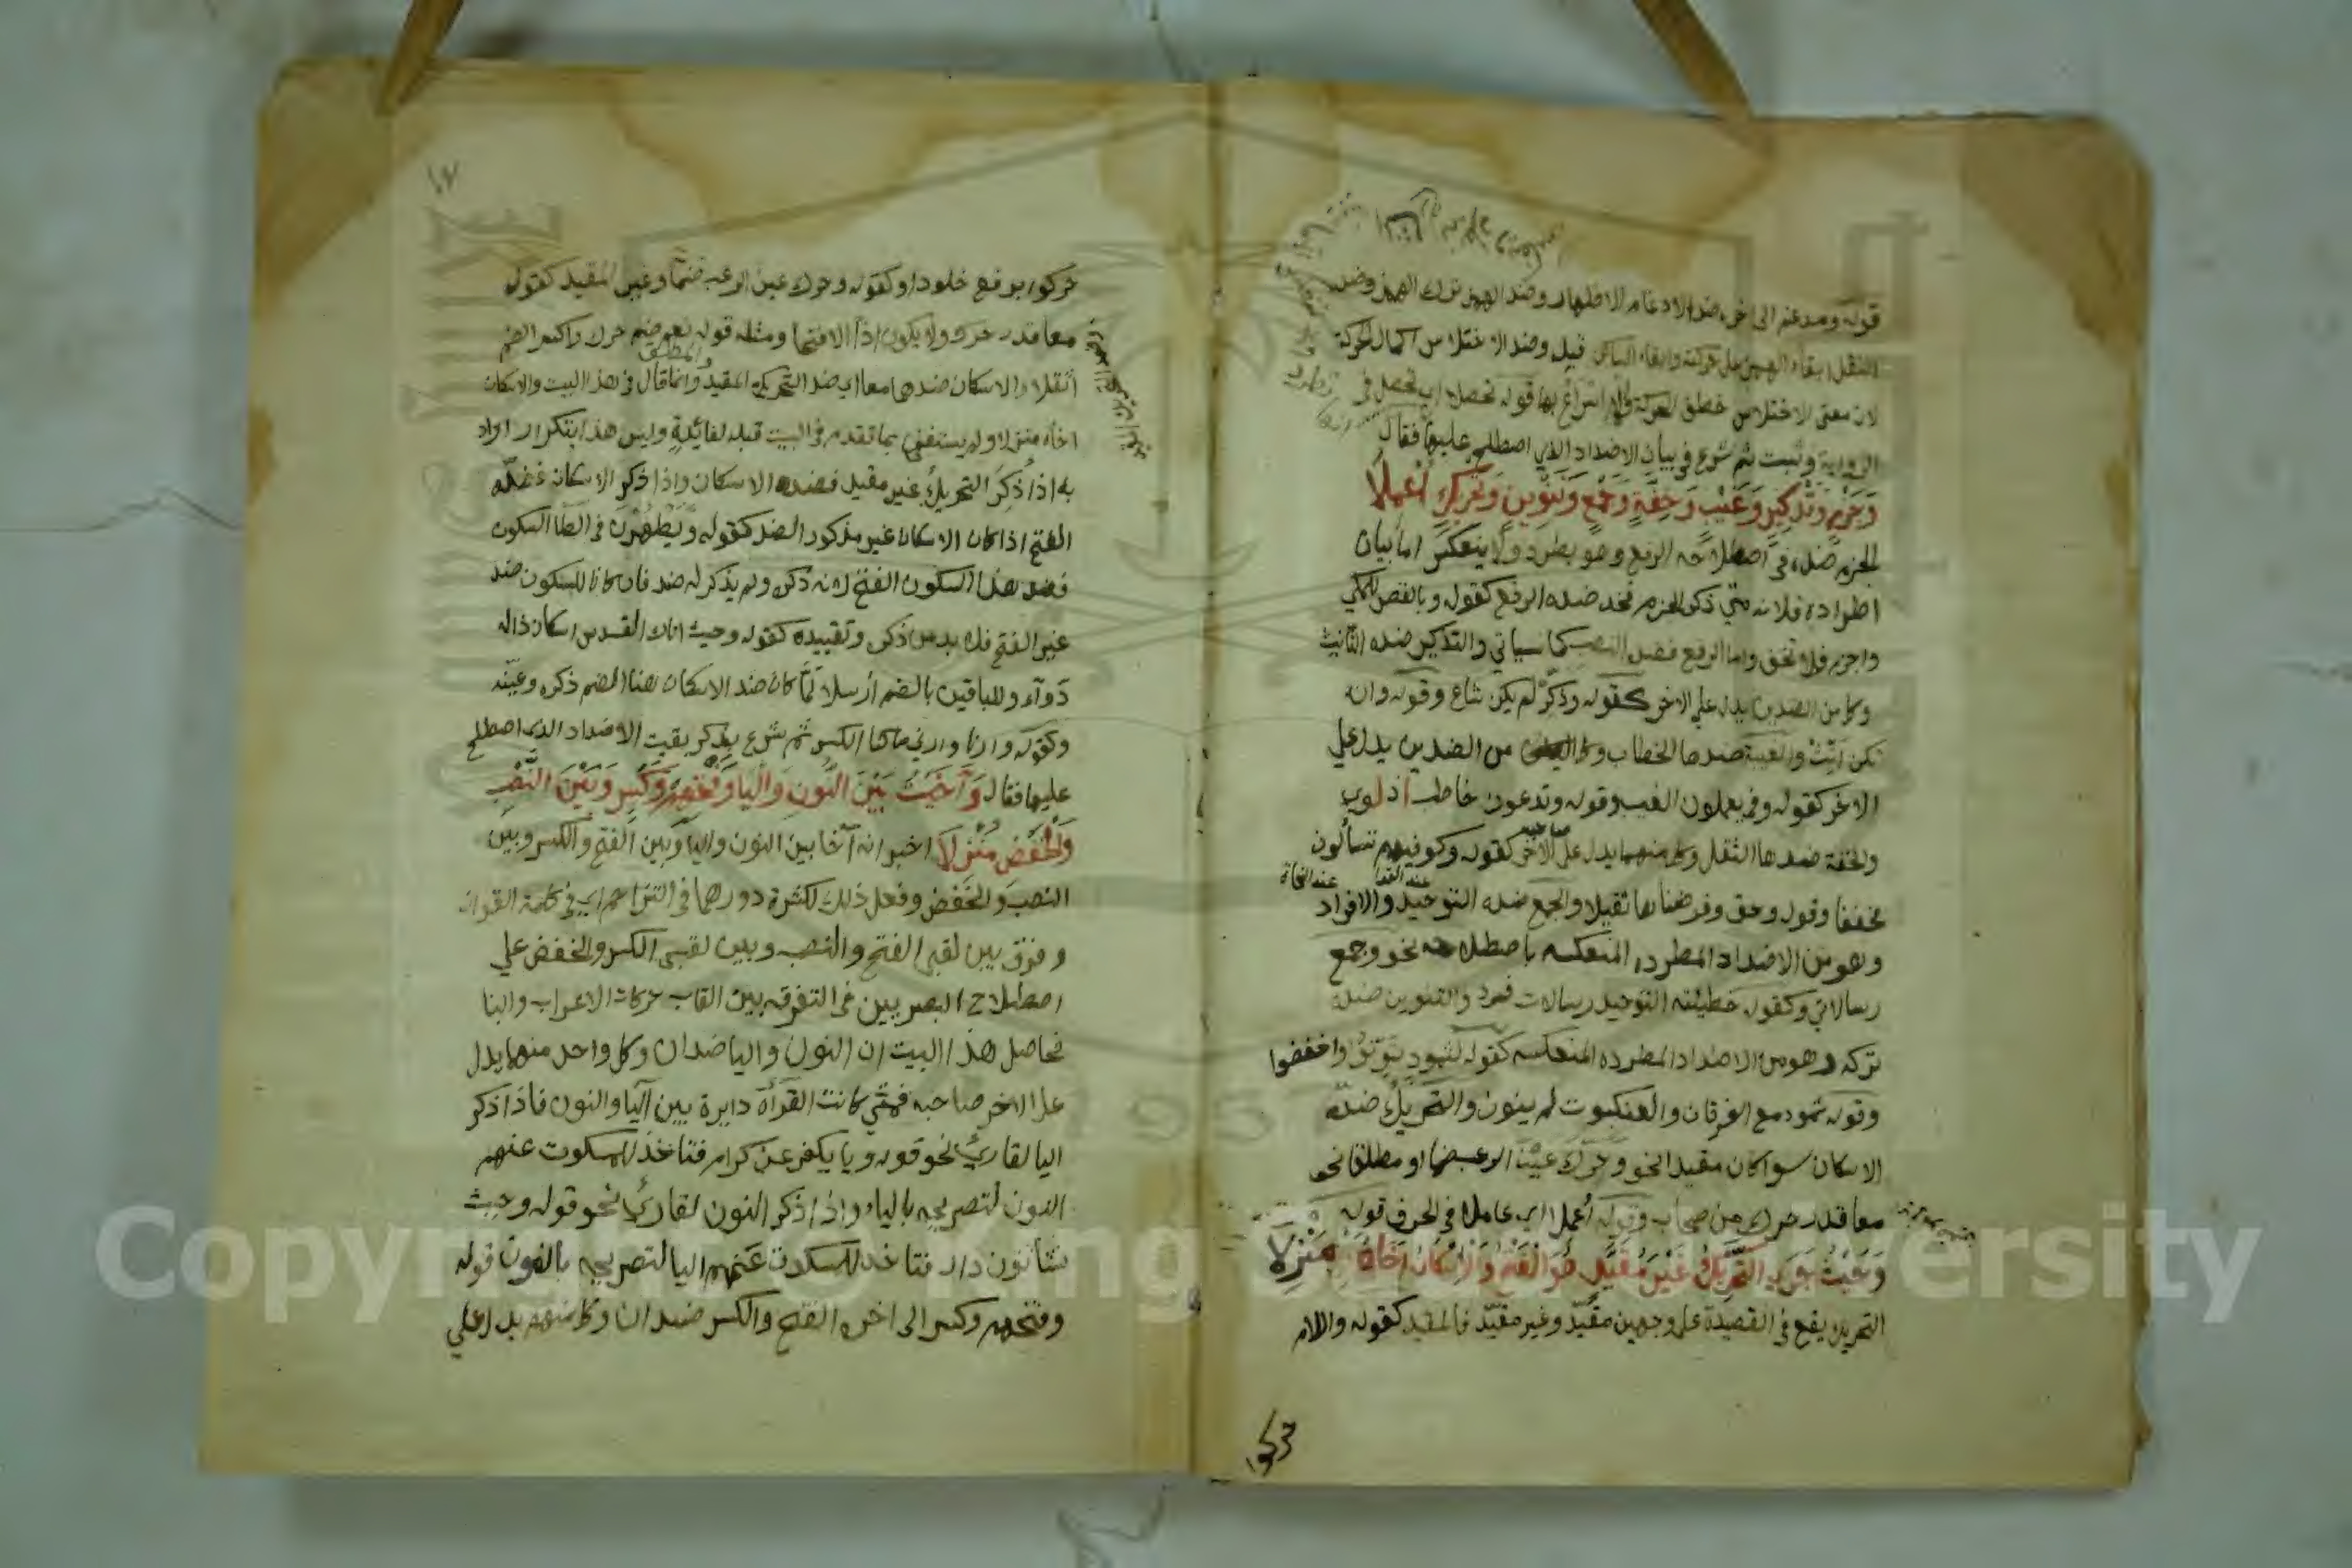 قوله ومدغم الى اخره ضد الادغام الاظهار وضد الهمز ترك الهمز وضد
النقل ابقاء الهمز على حركته وابقاء الساكن قبله وضد الاختلاس اكمال الحركة
لان معنى الاختلاس خطف الحركة والاسراع بها قوله تحصلا اي تحصل في
الرواية وثبت ثم شرع في بيان الاضداد الذي اصطلح عليها فقال
وَجَزْمٍ وَتَذْكِيرٍ وَغَيْبٍ وَخِفَّةٍ وَجَمْعٍ وَتَنْوِينٍ وَتَحْرِيكٍ اُعْمِلَا
الجزم ضده في اصطلاحه الرفع وهو يطرد ولا ينعكس اما بيان
اطراده فلانه متى ذكر الجزم فخذ ضده الرفع كقوله وبالقصر للمكي
واجزم فلا تخف واما الرفع فضده النصب كما سياتي والتذكير ضده التانيث
وكل من الضدين يدل على الاخر كقوله وذكّر لم يكن شاع وقوله وان
تكن انّث والغيبة ضدها الخطاب وكل من الضدين يدل على
الاخر كقوله وفي يعملون الغيب وقوله وتدعون خاطب اذ لوى
والخفة ضدها الثقل وكل منهما يدل على الاخر كقوله وكوفيهم تساءلون
صاحبه
عند القرا عند النحاة
مخففا وقوله وحق وفرضنا ثقيلا والجمع ضده التوحيد والافراد
وهو من الاضداد المطرده المنعكسه باصطلاحه نحو وجمع
رسالاتي وكقوله خطيئته التوحيد رسالات فرد والتنوين ضده
تركه وهو من الاضداد المطرده المنعكسه كقوله لثمودٍ نوّنوا واخفضوا
وقوله ثمود مع الفرقان والعنكبوت لم ينون والتحريك ضده
الاسكان سوا كان مقيدا نحو وحرك عين الرعب ضما او مطلقا نحو
معا قدر حرك من صحاب وقوله أعملا اي عاملا في الحرف قوله
وَحَيْثُ جَرَى التَّحْرِيكُ غَيْرَ مُقَيَّدٍ هُوَ الْفَتْحُ وَالاِسْكَانُ آخَاهُ مَنْزِلَا
التحريك يقع في القصيدة على وجهين مقيّد وغير مقيّد فالمقيد كقوله واللام
حركوا برفع خلودا وكقوله وحرك عين الرعب ضمّا وغير المقيد كقوله
معا قدر حرك ولا يكون اذاً الا فتحا ومثله قوله نعم ضم حرك واكسر الضم
والمطلق
أثقلا والاسكان ضدهما معا اي ضد التحريك المقيد وانما قال في هذا البيت والاسكان
اخاه منزلا ولم يستغني بما تقدم في البيت قبله لفائدةٍ وليس هذا بتكرار اراد
به اذا ذُكِرَ التحريكُ غير مقيد فضده الاسكان واذا ذكر الاسكان فضدّه
الفتح اذا كان الاسكان غير مذكور الضد كقوله ويَطْهُرْنَ في الطا السكون
فضد هذا السكون الفتح لانه ذكره ولم يذكر له ضد فان كان للسكون ضد
غير الفتح فلا بد من ذكره وتقييده كقوله وحيث اتاك القدس اسكان داله
دَواء وللباقين بالضم أرسلا لمّا كان ضد الاسكان هنا الضم ذكره وعيّنه
وكقوله وارنا وارني ساكنا الكسر ثم شرع يذكر بقيت الاضداد الذى اصطلح
عليها فقال وَآخَيْتُ بَيْنَ النُّونِ وَاليَا وَفَتْحِهِمْ وَكَسْرٍ وَبَيْنَ النَّصْبِ
وَالْخَفْضِ مُنْزِلَا اخبر انه آخا بين النون واليا وبين الفتح والكسر وبين
النصب والخفض وفعل ذلك لكثرة دورهما في التراجم اي في كلمة القران
وفرق بين لقبى الفتح والنصب وبين لقبى الكسر والخفض على
اصطلاح البصريين في التفرقه بين القاب حركات الاعراب والبنا
فحاصل هذا البيت ان النون واليا ضدان وكل واحد منهما يدل
على الاخر صاحبه فمتي كانت القرآة دايرة بين اليا والنون فاذا ذكر
اليا لقارئ نحو قوله ويا يكفر عن كرام فتاخذ للسكوت عنهم
النون لتصريحه بالياء واذا ذكر النون لقارئ نحو قوله وحيث
يشا نون دار فتاخذ للسكوت عنهم اليا لتصريحه بالنون قوله
وفتحهم وكسر الى اخره الفتح والكسر ضدان وكل منهم يدل على
Copyright © King Saud University